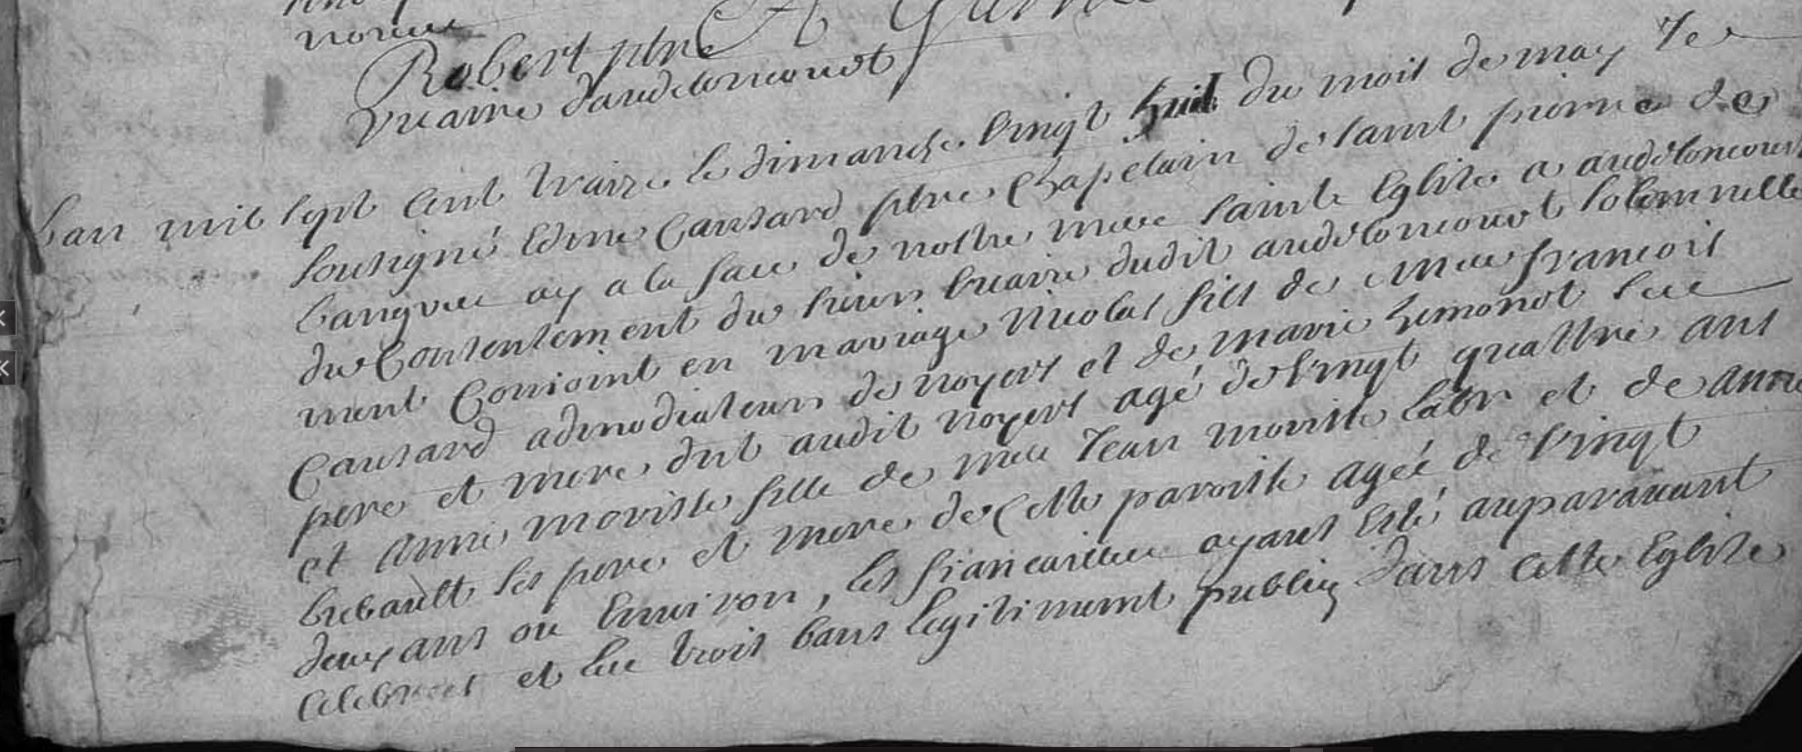 nouue
Robert ptre
vicaire daudeloncourt
Lan mil sept cent traize le dimanche vingt huit du moit de may Je
sousigné Edme Causard ptre Chapelain de saint pierre de
Langree ay a la face de nostre mere sainte Eglise a audeloncourt
du Consentement du sieur vicaire dudit audeloncourt solemnelle
ment Conioint en mariage Nicolas fils de Mee francois
Causard admodiateur de noyers et de marie hemonot see
pere et mere dud audit noyers agé de vingt quattre ans
et Anne morisse fille de Mee Jean morisse Labr et de Anne
bresault ses pere et mere de Cette paroisse agée de vingt
deux ans ou Environ, les fiancaillee ayant Esté auparauant
Celebrees et lee trois bans legitimemt publiez dans cette Eglise